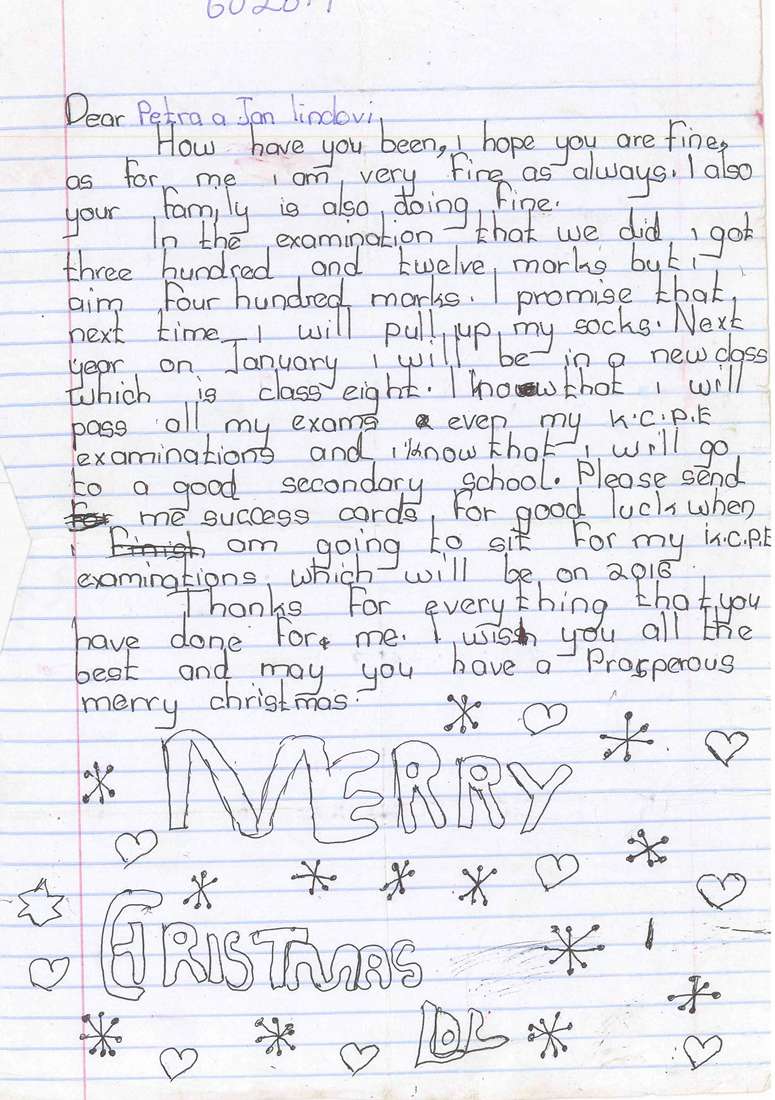 Dear Petra a Jan lindovi,
How have you been, I hope you are fine,
as for me I am very fine as always. I also
your family is also doing fine.
In the examination that we did, I got
three hundred and twelve marks but I
aim four hundred marks. I promise that
next time I will pull up my socks. Next
year on January I will be in a new class
which is class eight. I know that I will
pass all my exams even my K.C.P.E
examinations and I know that I will go
to a good secondary school. Please send
me success cards for good luck when
I finish am going to sit for my K.C.P.E
examinations which will be on 2016
Thanks for everything that you
have done for me. I wish you all the
best and may you have a Prosperous
merry christmas.
MERRY
CHRISTMAS
LOL